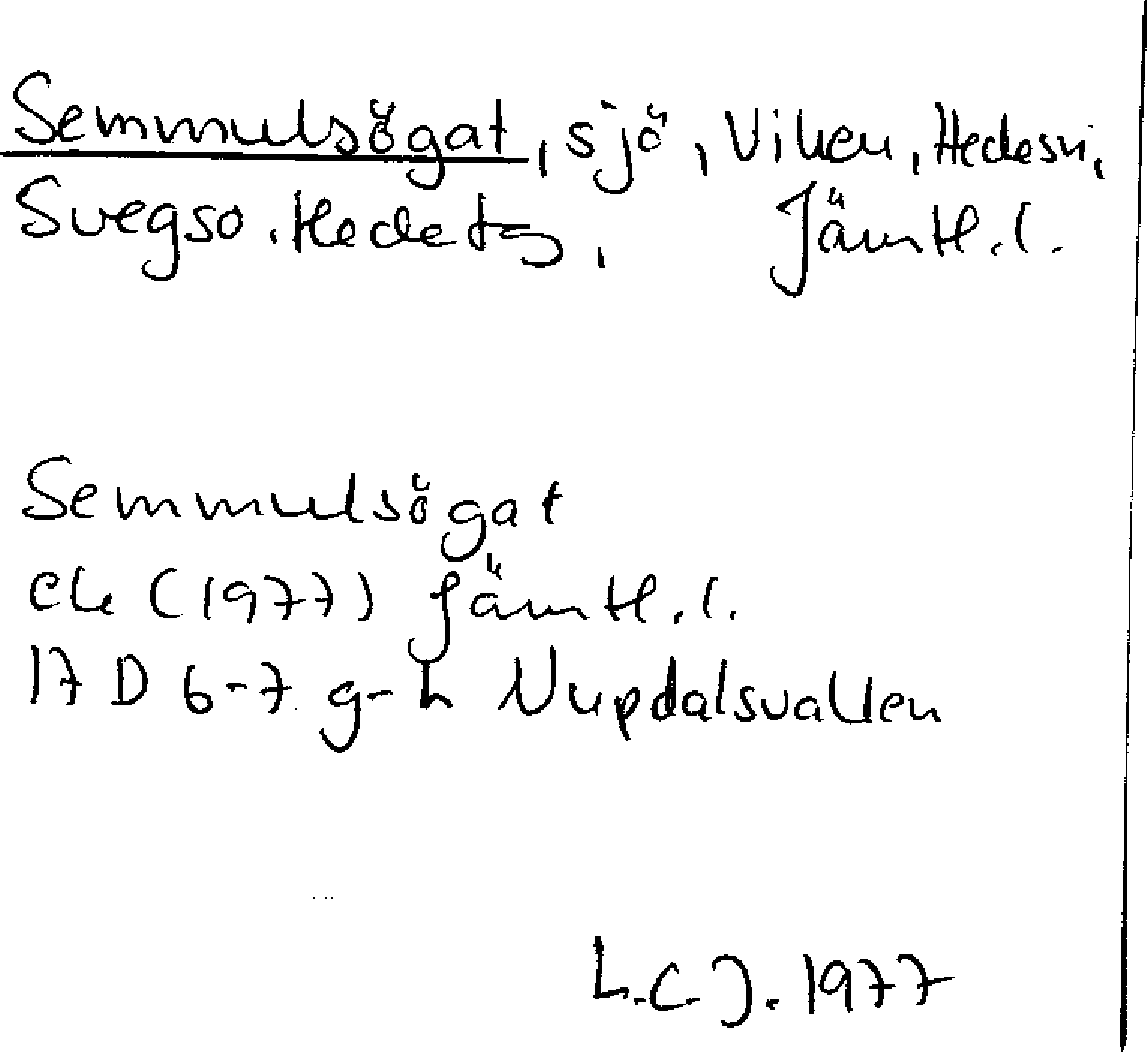 Semmulsögat, sjö, Viken, Hedesn,
Svegso. Hedetg, Jämtl.l.
Semmulsögat
ek (1977) Jämtl.l.
17 D 6-7 g-h Nupdalsvallen
L.C J. 1977